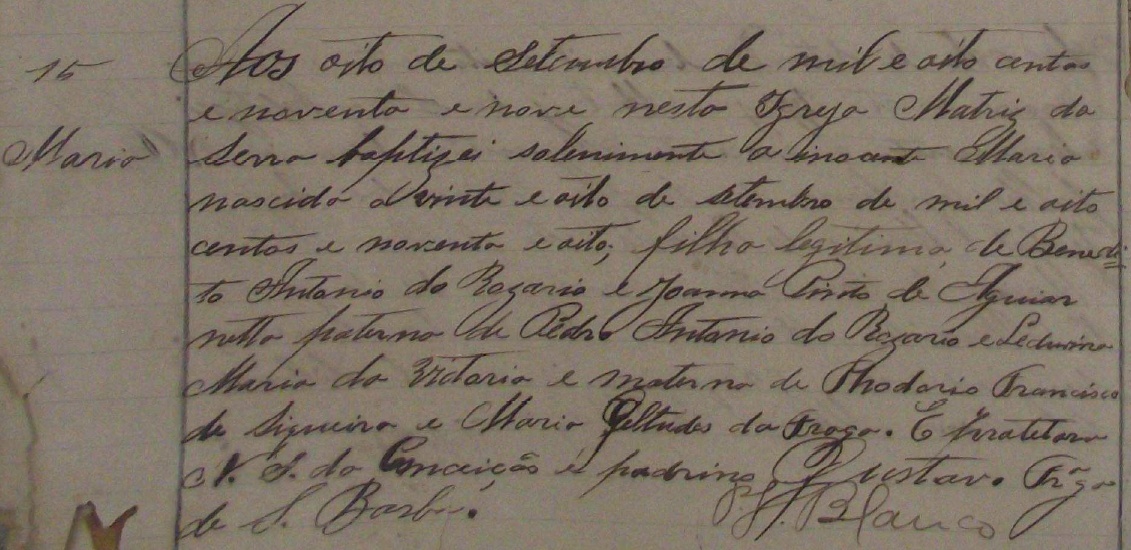 15
Maria
Aos oito de Setembro de mil e oito centos
e noventa e nove nesta Igreja Matriz da
Serra baptizei solenimente a inocente Maria
nascida a vinte e oito de setembro de mil e oito
centos e noventa e oito, filha legitima de Benedi-
to Antonio do Rozario e Joanna Pinto de Aguiar
netta paterna de Pedro Antonio do Rozario e Ledwina
Maria da Victoria e materna de Francisco
de Siqueira e Maria da Fraga. E
N. S. da Conceição e padrino Gustavo Frga
de S.
Blanco